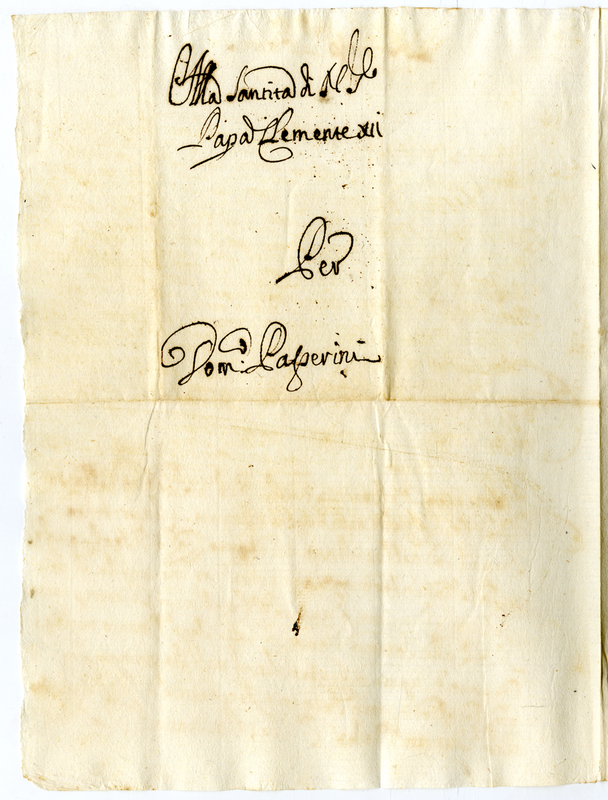 Alla Santità di N. S.
Papa Clemente XII
Per
Dom.º Passerini